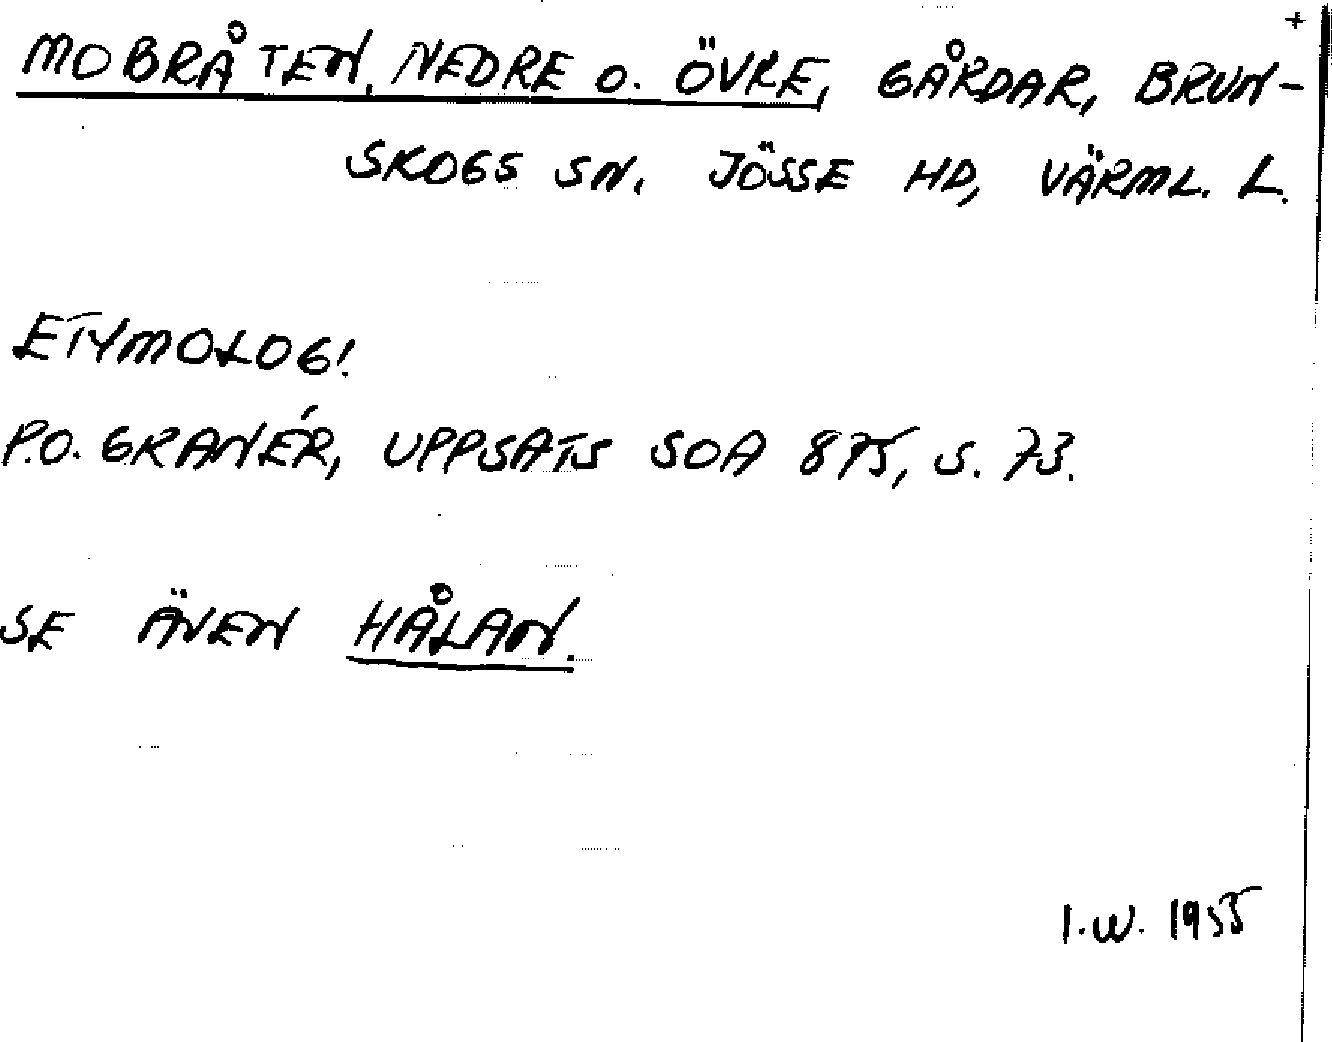 +
MOBRÅTEN, NEDRE O. ÖVRE, GÅRDAR, BRUN-
SKOGS SN. JÖSSE HD, VÄRML. L.
ETYMOLOG!
P.O. GRANÉR, UPPSATS SOA 875, S. 73.
SE ÄVEN HÅLAN.
I.W. 1955